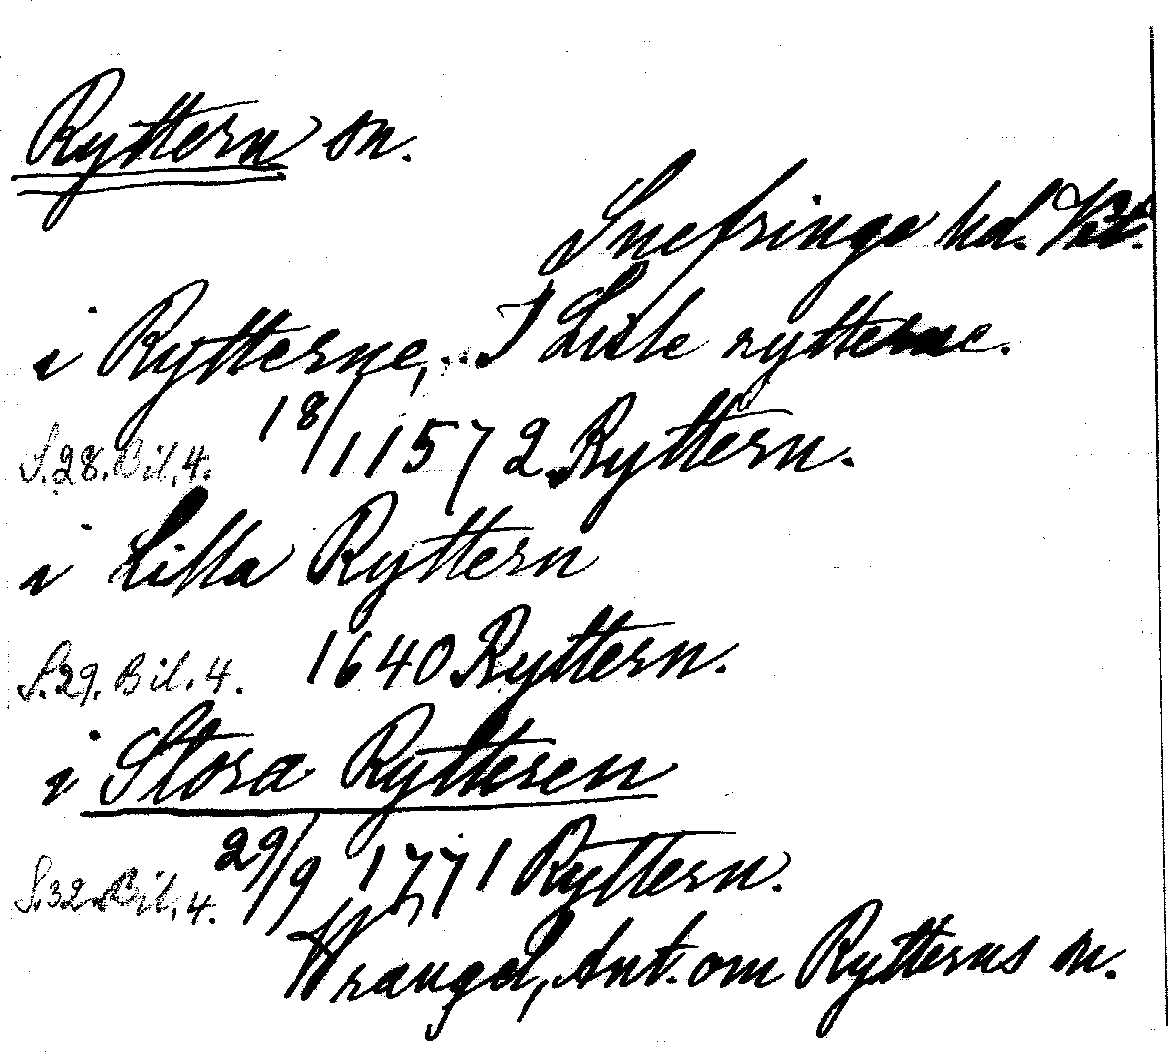 Ryttern sn.
Snefringe hd. Vstm.
i Rytterne, .. I Lisle rytterne.
18/11 1572 Ryttern.
S. 28. Bil. 4.
i Lilla Ryttern
S. 29. Bil. 4. 1640 Ryttern.
i Stora Ryttern
S. 32 Bil. 4. 29/9 1771 Ryttern.
Wrangel, Ant. om Rytterns sn.